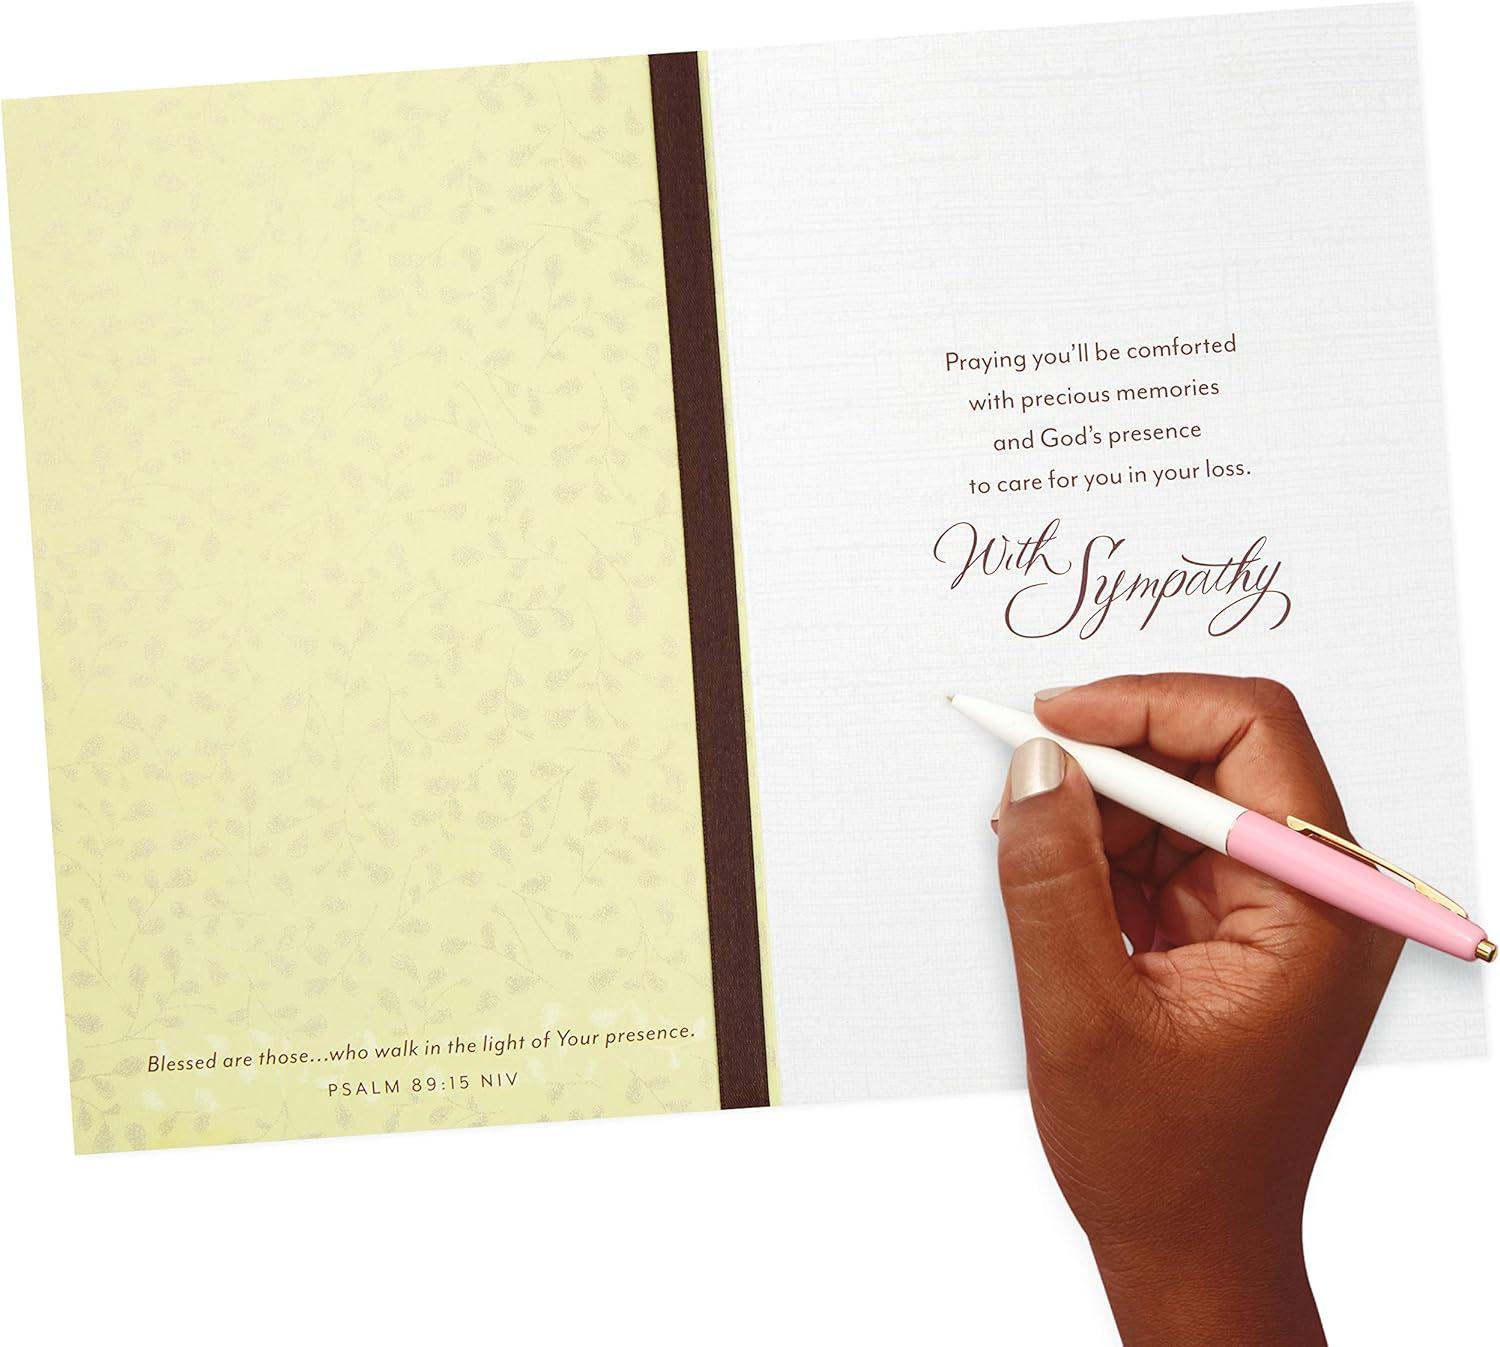 Blessed are those...who walk in the light of Your presence.
PSALM 89:15 NIV
Praying you'll be comforted
with precious memories
and God's presence
to care for you in your loss.
With Sympathy